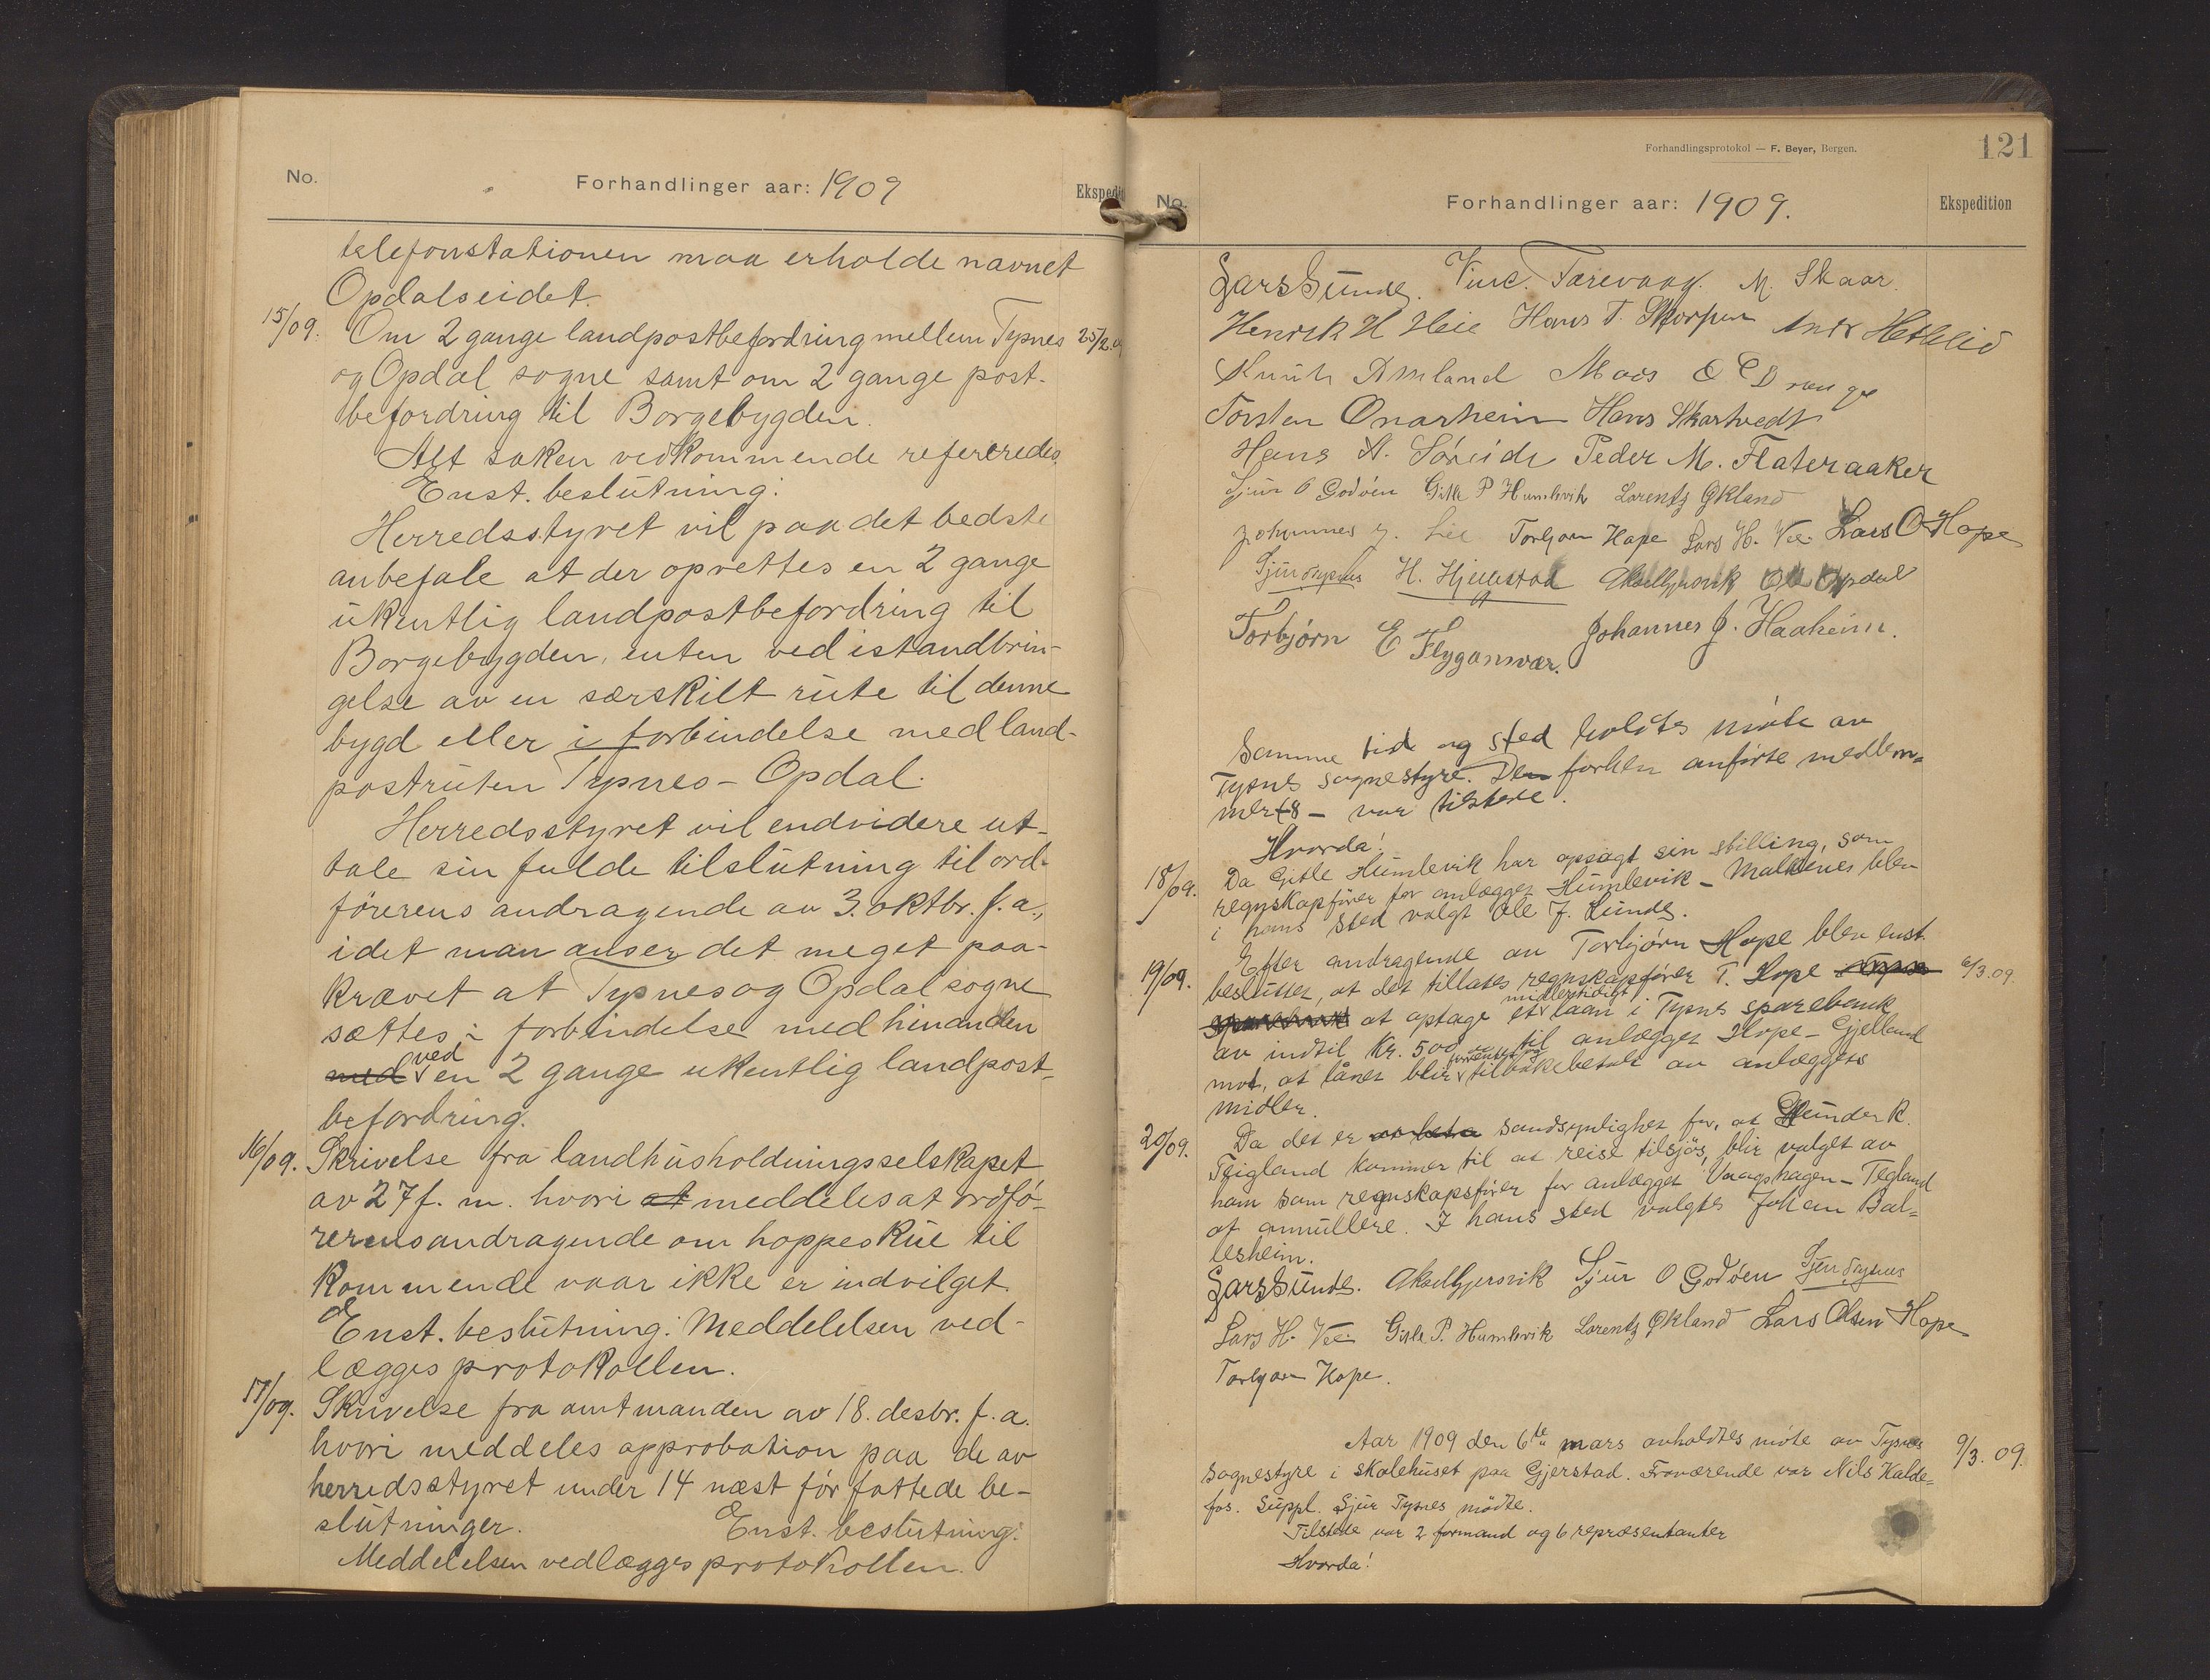 No.
Forhandlinger aar: 1909
Ekspedi
telefonstationen maa erholde navnet
Opdalseidet.
15/09. Om 2 gange landpostbefordring mellem Tysnes 25/2.09
og Opdal sogne samt om 2 gange post-
befordring til Borgebygden.
Alt saken vedkommende refereredes.
Enst. beslutning:
Herredsstyret vil paa det bedste
anbefale at der oprettes en 2 gange
ukentlig landpostbefordring til
Borgebygden, enten ved istandbrin-
gelse av en særskilt rute til denne
bygd eller i forbindelse med land-
postruten Tysnes - Opdal.
Herredsstyret vil endvidere ut-
tale sin fulde tilslutning til ord-
førerens andragende av 3. oktbr. f. a.,
idet man anser det meget paa-
krævet at Tysnes og Opdal sogne
sættes i forbindelse med hinanden
med ved en 2 gange ukentlig landpost-
befordring.
16/09. Skrivelse fra landhusholdningsselskapet
av 27 f. m. hvori at meddeles at ordfø-
rerens andragende om hoppeskue til
kommende vaar ikke er indvilget.
Enst. beslutning: Meddelelsen ved-
lægges protokollen.
17/09. Skrivelse fra amtmanden av 18. desbr. f. a.
hvori meddeles approbation paa de av
herredsstyret under 14 næst før fattede be-
slutninger. Enst. beslutning:
Meddelelsen vedlægges protokollen.
Forhandlingsprotokol — F. Beyer, Bergen.
121
No.
Forhandlinger aar: 1909.
Ekspedition
Lars Sunde. Vinc. Tarevaag. M. Skaar.
Henrik H Heie Hans T. Skorpen Andr Hetlelid
Knut Amland Mons O Drange
Torsten Onarheim Hans Skartvedt
Hans A. Søreide Peder M. Flateraaker
Sjur O Godøen Gitle P Humlevik Lorentz Økland
Johannes J. Lie Torbjørn Hope Lars H. Vee. Lars O Hope
Sjur Tysnes H. Hjellestad Aksel Gjersvik Ole Opdal
Torbjørn E Flyganvær. Johannes J. Haaheim.
Samme tid og sted holdtes møte av
Tysnes sognestyre. Den forhen anførte medlem-
mer - 8 - var tilstede.
Hvorda!
18/09. Da Gitle Humlevik har opsagt sin stilling, som
regnskapsfører for anlægget Humlevik - Malkenes blev
i hans sted valgt Ole J. Sunde.
19/09. Efter andragende av Torbjørn Hope blev enst.
besluttet, at det tillates regnskapsfører T. Hope i Tysnes 6/3.09.
sparebank at optage et midlertidigt laan i Tysnes sparebank
av indtil Kr. 500 til anlægget Hope - Gjelland
mot, at lånet blir tilbakebetalt av anlæggets
midler.
20/09. Da det er sandsynlighet for, at Gunder K.
Teigland kommer til at reise tilsjøs, blir valget av
ham som regnskapsfører for anlægget Vaagshagen - Tegland
at annullere. I hans sted valgtes Johan Bal-
lesheim.
Lars Sunde. Aksel Gjersvik Sjur O Godøen Sjur Tysnes
Lars H. Vee. Gitle P. Humlevik Lorentz Økland Lars Olsen Hope
Torbjørn Hope.
Aar 1909 den 6te mars avholdtes møte av Tysnes 9/3. 09.
sognestyre i skolehuset paa Gjerstad. Fraværende var Nils Kalde-
fos. Suppl. Sjur Tysnes mødte.
Tilstede var 2 formænd og 6 repræsentanter
Hvorda!